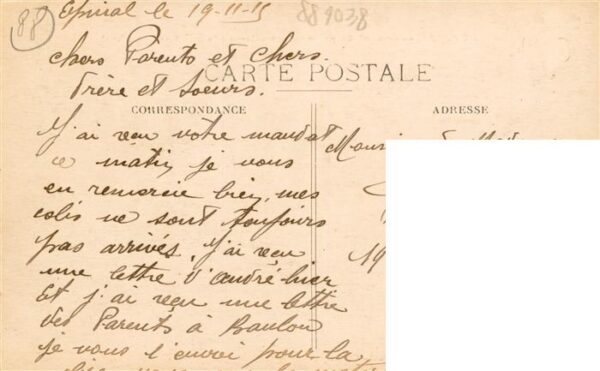 88
Epinal le 19-11-15
889038
chers Parents et chers
CARTE POSTALE
frère et soeurs.
CORRESPONDANCE
ADRESSE
J'ai reçu votre mandat
ce matin, je vous
en remercie bien, mes
colis ne sont toujours
pas arrivés, J'ai reçu
une lettre d'andré hier
Et j'ai reçu une lettre
des Parents à
je vous l'envoi pour la